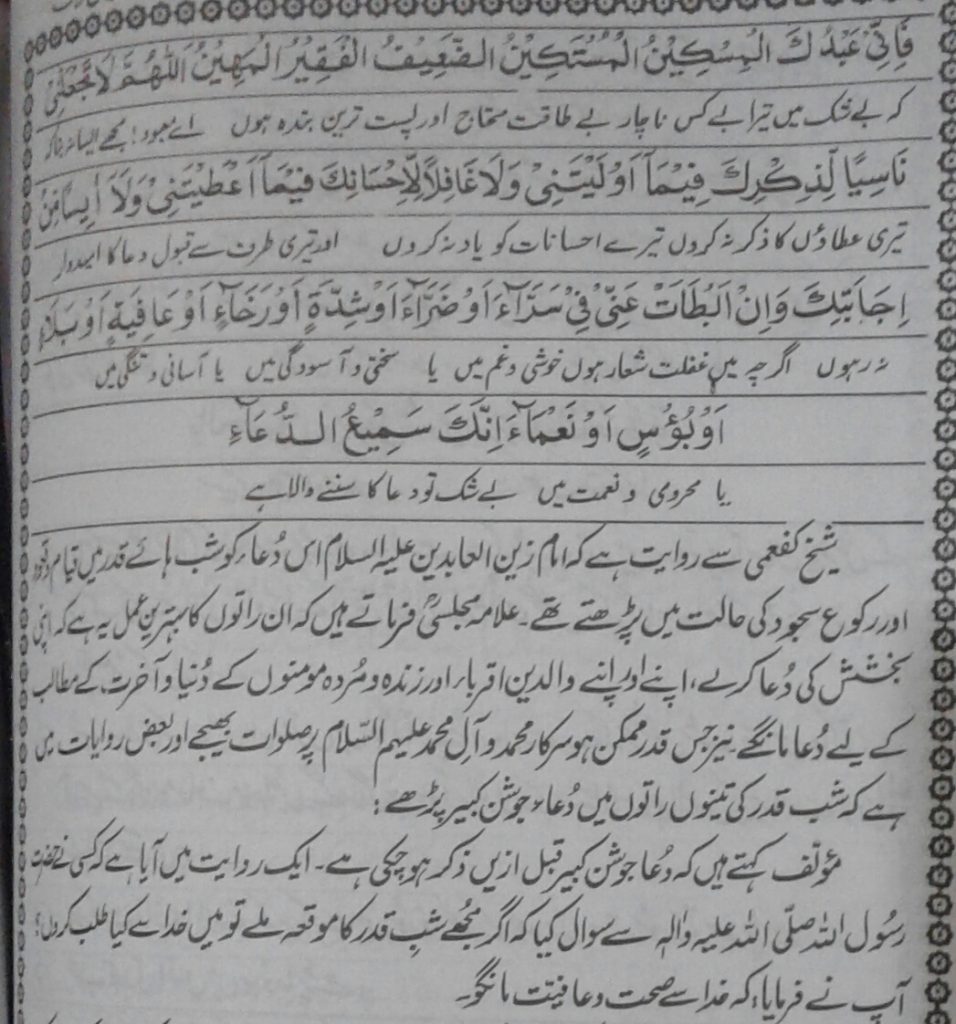 فَاِنِّیْ عَبْدُكَ الْمِسْكِیْنُ الْمُسْتَكِیْنُ الضَّعِیْفُ الْفَقِیْرُ الْمَهِیْنُ اَللّٰهُمَّ لَا تَجْعَلْنِیْ
کہ بے شک میں تیرا بے کس ناچار بے طاقت محتاج اور پست ترین بندہ ہوں اے معبود! مجھے ایسا نہ بنا کہ
نَاسِیًا لِّذِكْرِكَ فِیْمَآ اَوْلَیْتَنِیْ وَلَا غَافِلًا لِّاِحْسَانِكَ فِیْمَآ اَعْطَیْتَنِیْ وَلَآ اٰیِسًا مِّنْ
تیری عطاؤں کا ذکر نہ کروں تیرے احسانات کو یاد نہ کروں اور تیری طرف سے قبول دعا کا امیدوار
اِجَابَتِكَ وَاِنْ اَبْطَاَتْ عَنِّیْ فِیْ سَرَّآءَ اَوْ ضَرَّآءَ اَوْ شِدَّةٍ اَوْ رَخَآءٍ اَوْ عَافِیَةٍ اَوْ بَلَآءٍ
نہ رہوں اگرچہ میں غفلت شعار ہوں خوشی و غم میں یا سختی و آسودگی میں یا آسانی و تنگی میں
اَوْ بُؤْسٍ اَوْ نَعْمَآءَ اِنَّكَ سَمِیْعُ الدُّعَآءِ
یا محرومی و نعمت میں بے شک تو دعا کا سننے والا ہے
شیخ کفعمی سے روایت ہے کہ امام زین العابدین علیہ السلام اس دُعاء کو شب ہائے قدر میں قیام و قعود
اور رکوع سجود کی حالت میں پڑھتے تھے۔ علامہ مجلسیؒ فرماتے ہیں کہ ان راتوں کا بہترین عمل یہ ہے کہ اپنی
بخشش کی دُعا کرے، اپنے اور اپنے والدین اقرباء اور زندہ و مُردہ مومنوں کے دُنیا و آخرت کے مطالب
کے لیے دُعا مانگے نیز جس قدر ممکن ہو سرکار محمد و آلِ محمد علیہم السّلام پر صلوات بھیجے اور بعض روایات میں
ہے کہ شب قدر کی تینوں راتوں میں دُعاء جوشن کبیر پڑھے:
مؤلف کہتے ہیں کہ دُعا جوشن کبیر قبل ازیں ذکر ہو چکی ہے۔ ایک روایت میں آیا ہے کہ کسی نے حضرت
رسُول اللہ صلّی اللہ علیہ واٰلہٖ سے سوال کیا کہ اگر مجھے شبِ قدر کا موقعہ ملے تو میں خدا سے کیا طلب کروں؟
آپ نے فرمایا: کہ خدا سے صحت و عافیت مانگو۔